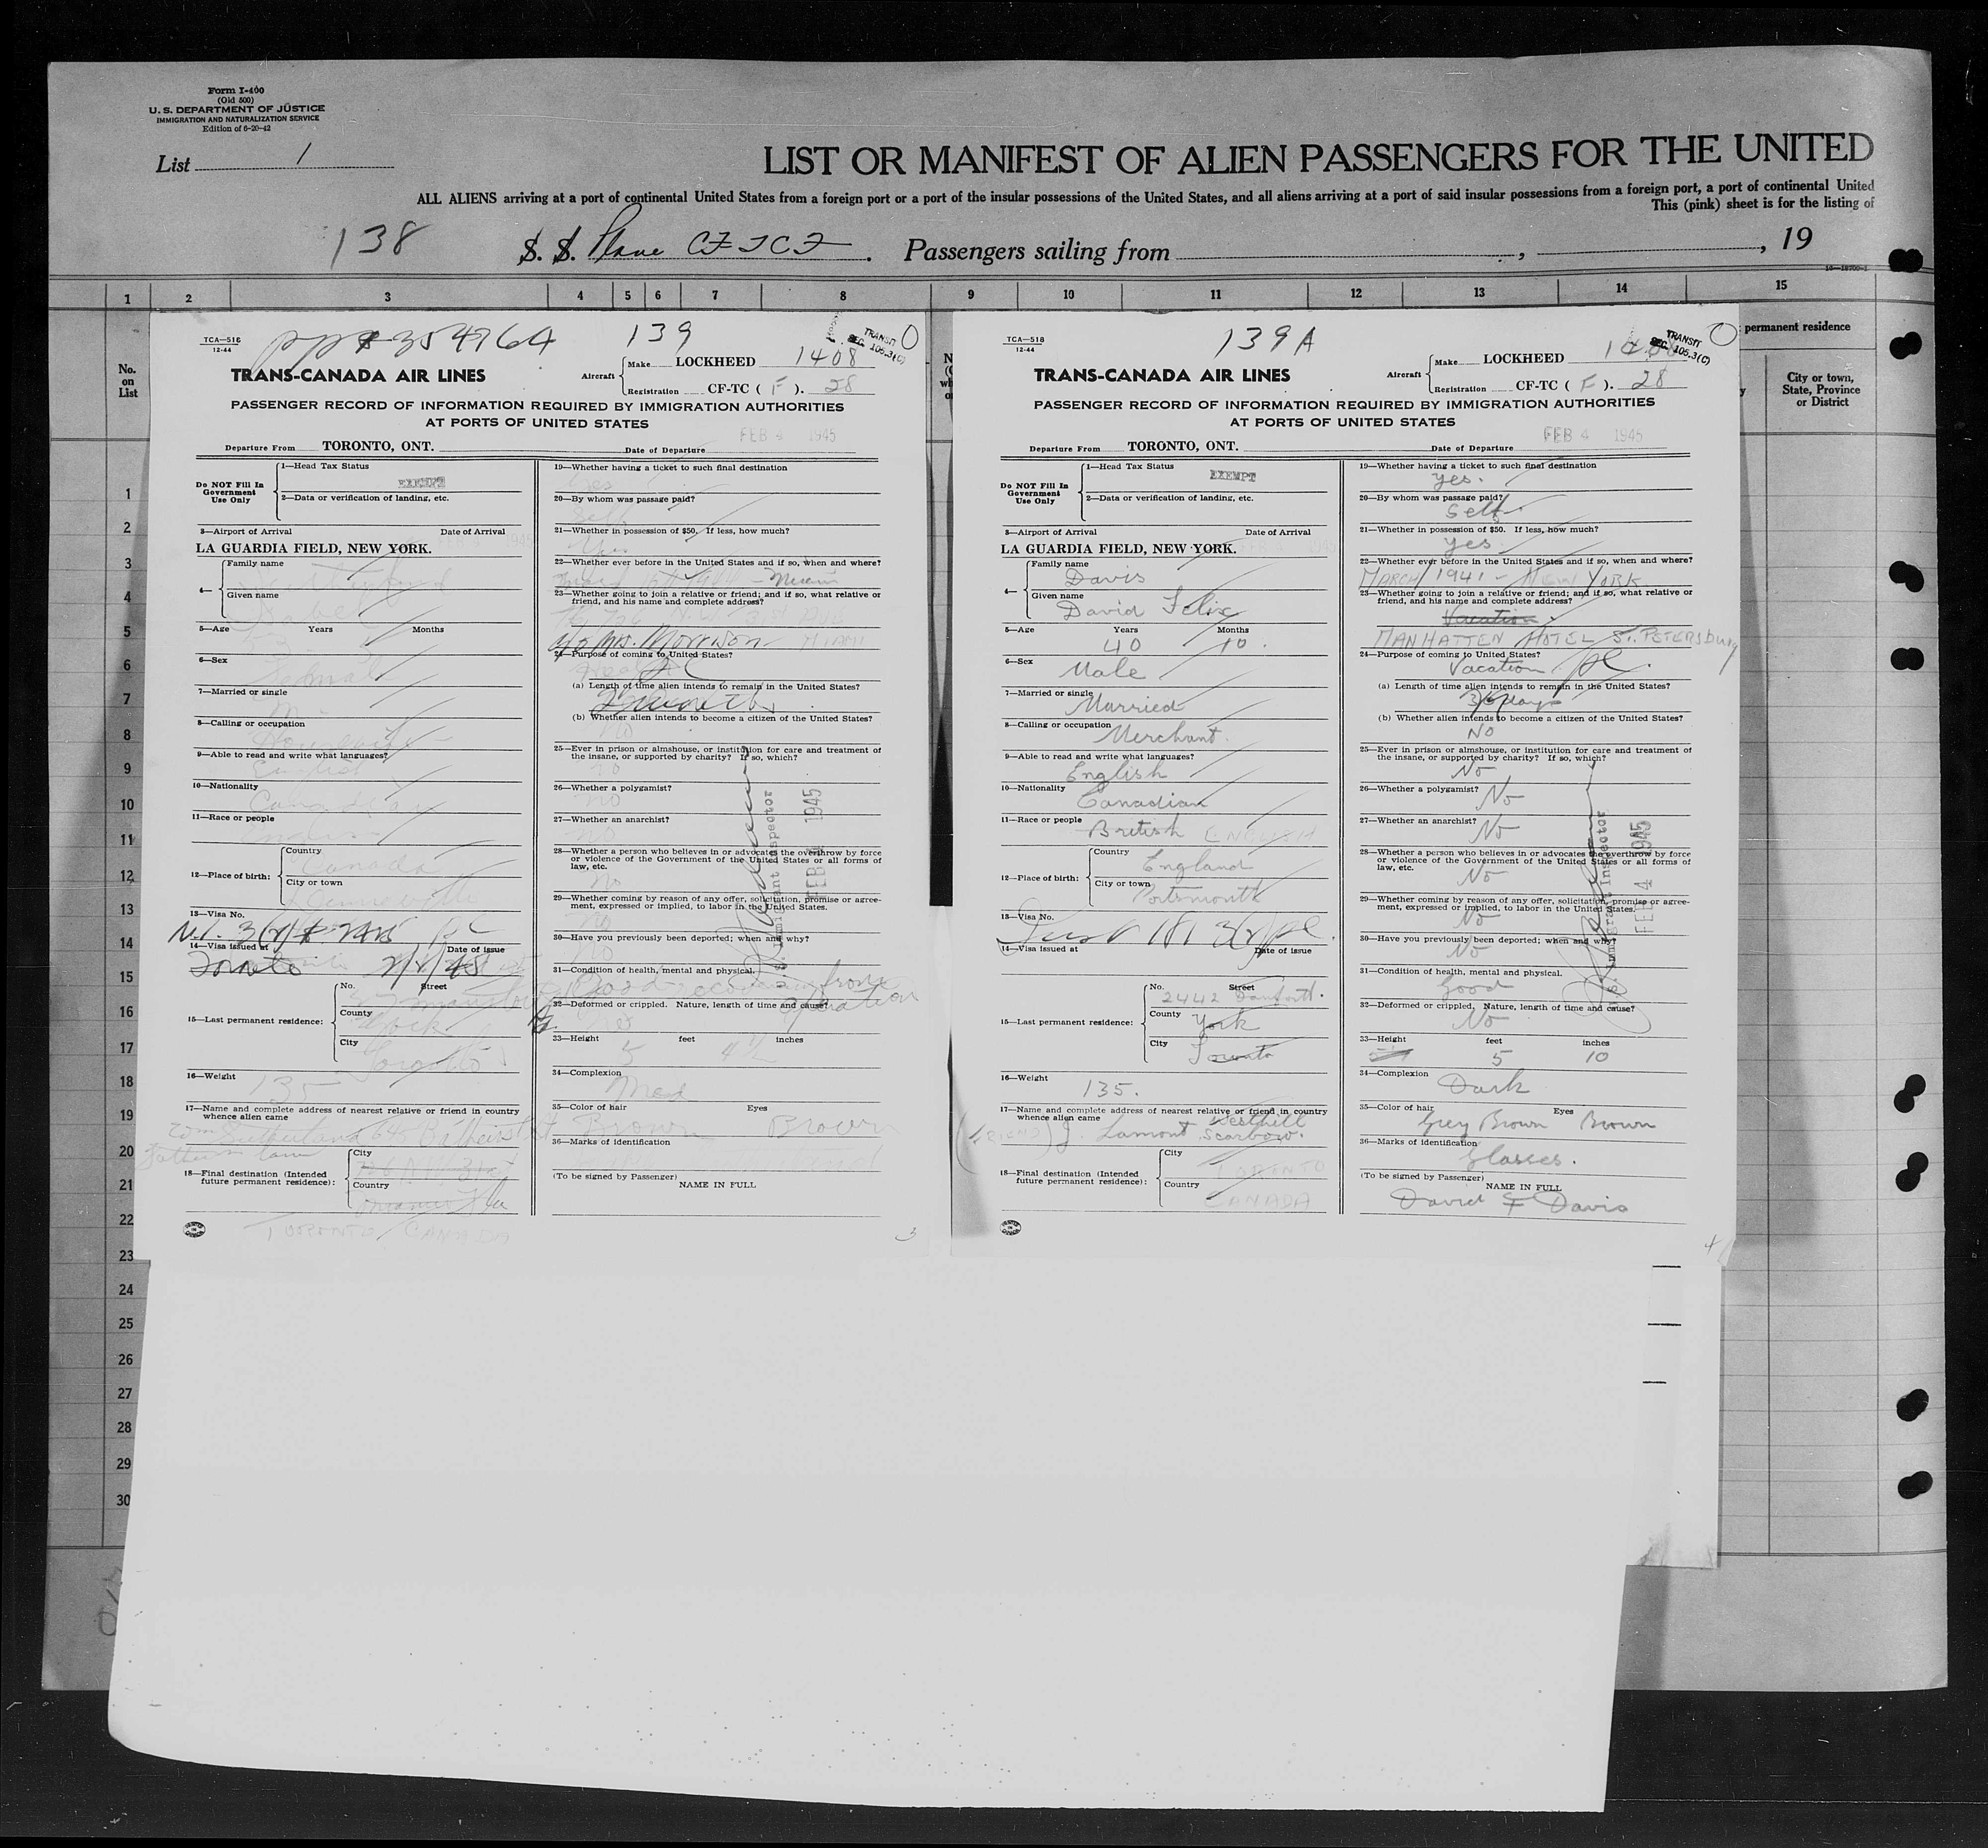 Form I-400
(Old 500)
U. S. DEPARTMENT OF JUSTICE
IMMIGRATION AND NATURALIZATION SERVICE
Edition of 6-20-42
List 1
LIST OR MANIFEST OF ALIEN PASSENGERS FOR THE UNITED
ALL ALIENS arriving at a port of continental United States from a foreign port or a port of the insular possessions of the United States, and all aliens arriving at a port of said insular possessions from a foreign port, a port of continental United
This (pink) sheet is for the listing of
138 S. S. Plane CF TCF . Passengers sailing from , , 19
1 2 3 4 5 6 7 8 9 10 11 12 13 14 15
No.
on
List
permanent residence
City or town,
State, Province
or District
1
2
3
4
5
6
7
8
9
10
11
12
13
14
15
16
17
18
19
20
21
22
23
24
25
26
27
28
29
30
TCA-518
12-44
139
TRANSIT
SEC. 105.3(C)
TRANS-CANADA AIR LINES
Aircraft
Make LOCKHEED 1408
Registration CF-TC ( F ). 28
PASSENGER RECORD OF INFORMATION REQUIRED BY IMMIGRATION AUTHORITIES
AT PORTS OF UNITED STATES
Departure From TORONTO, ONT. Date of Departure FEB 4 1945
Do NOT Fill In
Government
Use Only
1—Head Tax Status
EXEMPT
2—Data or verification of landing, etc.
3—Airport of Arrival Date of Arrival
LA GUARDIA FIELD, NEW YORK.
4—
Family name
Given name
5—Age Years Months
6—Sex
7—Married or single
8—Calling or occupation
9—Able to read and write what languages?
English
10—Nationality
Canadian
11—Race or people
12—Place of birth:
Country
Canada
City or town
13—Visa No.
14—Visa issued at Date of issue
Toronto
15—Last permanent residence:
No. Street
County
York
City
Toronto
16—Weight
135
17—Name and complete address of nearest relative or friend in country
whence alien came
18—Final destination (Intended
future permanent residence):
City
Country
TORONTO CANADA
19—Whether having a ticket to such final destination
Yes
20—By whom was passage paid?
Self
21—Whether in possession of $50. If less, how much?
Yes
22—Whether ever before in the United States and if so, when and where?
Miami
23—Whether going to join a relative or friend; and if so, what relative or
friend, and his name and complete address?
c/o Mrs. Morrison MIAMI
24—Purpose of coming to United States?
(a) Length of time alien intends to remain in the United States?
(b) Whether alien intends to become a citizen of the United States?
No
25—Ever in prison or almshouse, or institution for care and treatment of
the insane, or supported by charity? If so, which?
no
26—Whether a polygamist?
no
27—Whether an anarchist?
no
28—Whether a person who believes in or advocates the overthrow by force
or violence of the Government of the United States or all forms of
law, etc.
No
29—Whether coming by reason of any offer, solicitation, promise or agree-
ment, expressed or implied, to labor in the United States.
no
30—Have you previously been deported; when and why?
No
31—Condition of health, mental and physical.
Good
32—Deformed or crippled. Nature, length of time and cause?
33—Height feet inches
5 4½
34—Complexion
Med
35—Color of hair Eyes
Brown Brown
36—Marks of identification
(To be signed by Passenger)
NAME IN FULL
Immigrant Inspector
FEB 4 1945
3
TCA-518
12-44
139A
TRANSIT
SEC. 105.3(C)
TRANS-CANADA AIR LINES
Aircraft
Make LOCKHEED 1408
Registration CF-TC ( F ). 28
PASSENGER RECORD OF INFORMATION REQUIRED BY IMMIGRATION AUTHORITIES
AT PORTS OF UNITED STATES
Departure From TORONTO, ONT. Date of Departure FEB 4 1945
Do NOT Fill In
Government
Use Only
1—Head Tax Status
EXEMPT
2—Data or verification of landing, etc.
3—Airport of Arrival Date of Arrival
LA GUARDIA FIELD, NEW YORK.
4—
Family name
Davis
Given name
David Felix
5—Age Years Months
40 10.
6—Sex
Male
7—Married or single
Married
8—Calling or occupation
Merchant.
9—Able to read and write what languages?
English
10—Nationality
Canadian
11—Race or people
British ENGLISH
12—Place of birth:
Country
England
City or town
Portsmouth
13—Visa No.
14—Visa issued at Date of issue
15—Last permanent residence:
No. Street
2442 Danforth.
County
York
City
Toronto
16—Weight
135.
17—Name and complete address of nearest relative or friend in country
whence alien came
(FRIEND) J. Lamont Westhill
Scarboro.
18—Final destination (Intended
future permanent residence):
City
TORONTO
Country
CANADA
19—Whether having a ticket to such final destination
yes.
20—By whom was passage paid?
Self.
21—Whether in possession of $50. If less, how much?
yes
22—Whether ever before in the United States and if so, when and where?
MARCH 1941 - NEW YORK
23—Whether going to join a relative or friend; and if so, what relative or
friend, and his name and complete address?
Vacation
MANHATTEN HOTEL ST. PETERSBURG
24—Purpose of coming to United States?
Vacation
(a) Length of time alien intends to remain in the United States?
(b) Whether alien intends to become a citizen of the United States?
No
25—Ever in prison or almshouse, or institution for care and treatment of
the insane, or supported by charity? If so, which?
No
26—Whether a polygamist?
No
27—Whether an anarchist?
No
28—Whether a person who believes in or advocates the overthrow by force
or violence of the Government of the United States or all forms of
law, etc.
No
29—Whether coming by reason of any offer, solicitation, promise or agree-
ment, expressed or implied, to labor in the United States.
No
30—Have you previously been deported; when and why?
No
31—Condition of health, mental and physical.
Good
32—Deformed or crippled. Nature, length of time and cause?
No
33—Height feet inches
5 10
34—Complexion
Dark
35—Color of hair Eyes
Grey Brown Brown
36—Marks of identification
Glasses.
(To be signed by Passenger)
NAME IN FULL
David F Davis
Immigrant Inspector
FEB 4 1945
4